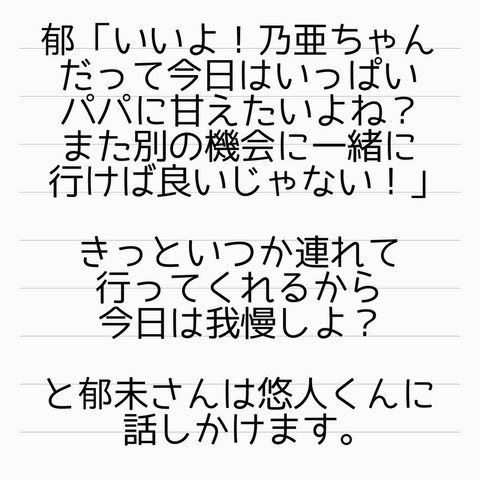 郁「いいよ！乃亜ちゃん
だって今日はいっぱい
パパに甘えたいよね？
また別の機会に一緒に
行けば良いじゃない！」
きっといつか連れて
行ってくれるから
今日は我慢しよ？
と郁未さんは悠人くんに
話しかけます。